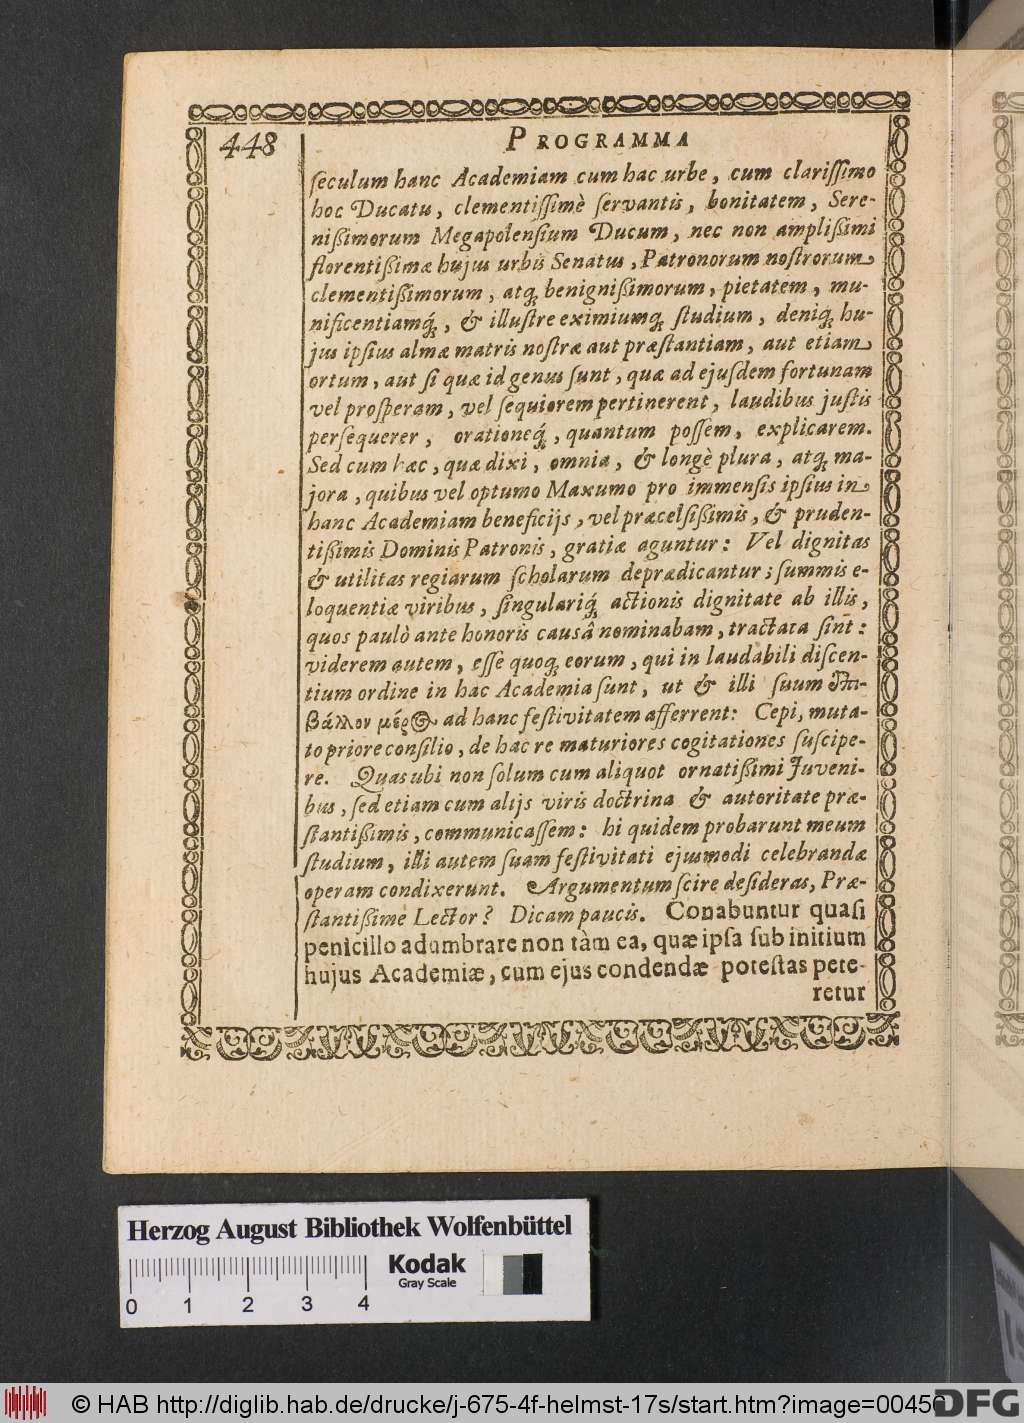 448
PROGRAMMA
ſeculum hanc Academiam cum hac urbe, cum clariſſimo
hoc Ducatu, clementiſſimè ſervantis, bonitatem, Sere-
nißimorum Megapolenſium Ducum, nec non amplißimi
florentißimæ hujus urbis Senatus, Patronorum noſtrorum
clementißimorum, atq; benignißimorum, pietatem, mu-
nificentiamq́;, & illuſtre eximiumq; ſtudium, deniq; hu-
jus ipſius almæ matris noſtræ aut præſtantiam, aut etiam
ortum, aut ſi quæ id genus ſunt, quæ ad ejuſdem fortunam
vel proſperam, vel ſequiorem pertinerent, laudibus juſtis
perſequerer, orationeq́;, quantum poſſem, explicarem.
Sed cum hæc, quæ dixi, omnia, & longè plura, atq; ma-
jora, quibus vel optumo Maxumo pro immenſis ipſius in
hanc Academiam beneficijs, vel præcelſißimis, & pruden-
tißimis Dominis Patronis, gratiæ aguntur: Vel dignitas
& utilitas regiarum ſcholarum deprædicantur; ſummis e-
loquentiæ viribus, ſingulariq́; actionis dignitate ab illis,
quos paulò ante honoris causâ nominabam, tractata ſint:
viderem autem, eſſe quoq; eorum, qui in laudabili diſcen-
tium ordine in hac Academia ſunt, ut & illi ſuum ἐπι-
βάλλον μέρος ad hanc feſtivitatem afferrent: Cepi, muta-
to priore conſilio, de hac re maturiores cogitationes ſuſcipe-
re. Quas ubi non ſolum cum aliquot ornatißimi Juveni-
bus, ſed etiam cum alijs viris doctrina & autoritate præ-
ſtantißimis, communicaſſem: hi quidem probarunt meum
ſtudium, illi autem ſuam feſtivitati ejusmodi celebrandæ
operam condixerunt. Argumentum ſcire deſideras, Præ-
ſtantißime Lector? Dicam paucis. Conabuntur quaſi
penicillo adumbrare non tàm ea, quæ ipſa ſub initium
hujus Academiæ, cum ejus condendæ poteſtas pete-
retur
Herzog August Bibliothek Wolfenbüttel
Kodak
Gray Scale
0 1 2 3 4
© HAB http://diglib.hab.de/drucke/j-675-4f-helmst-17s/start.htm?image=00456
DFG